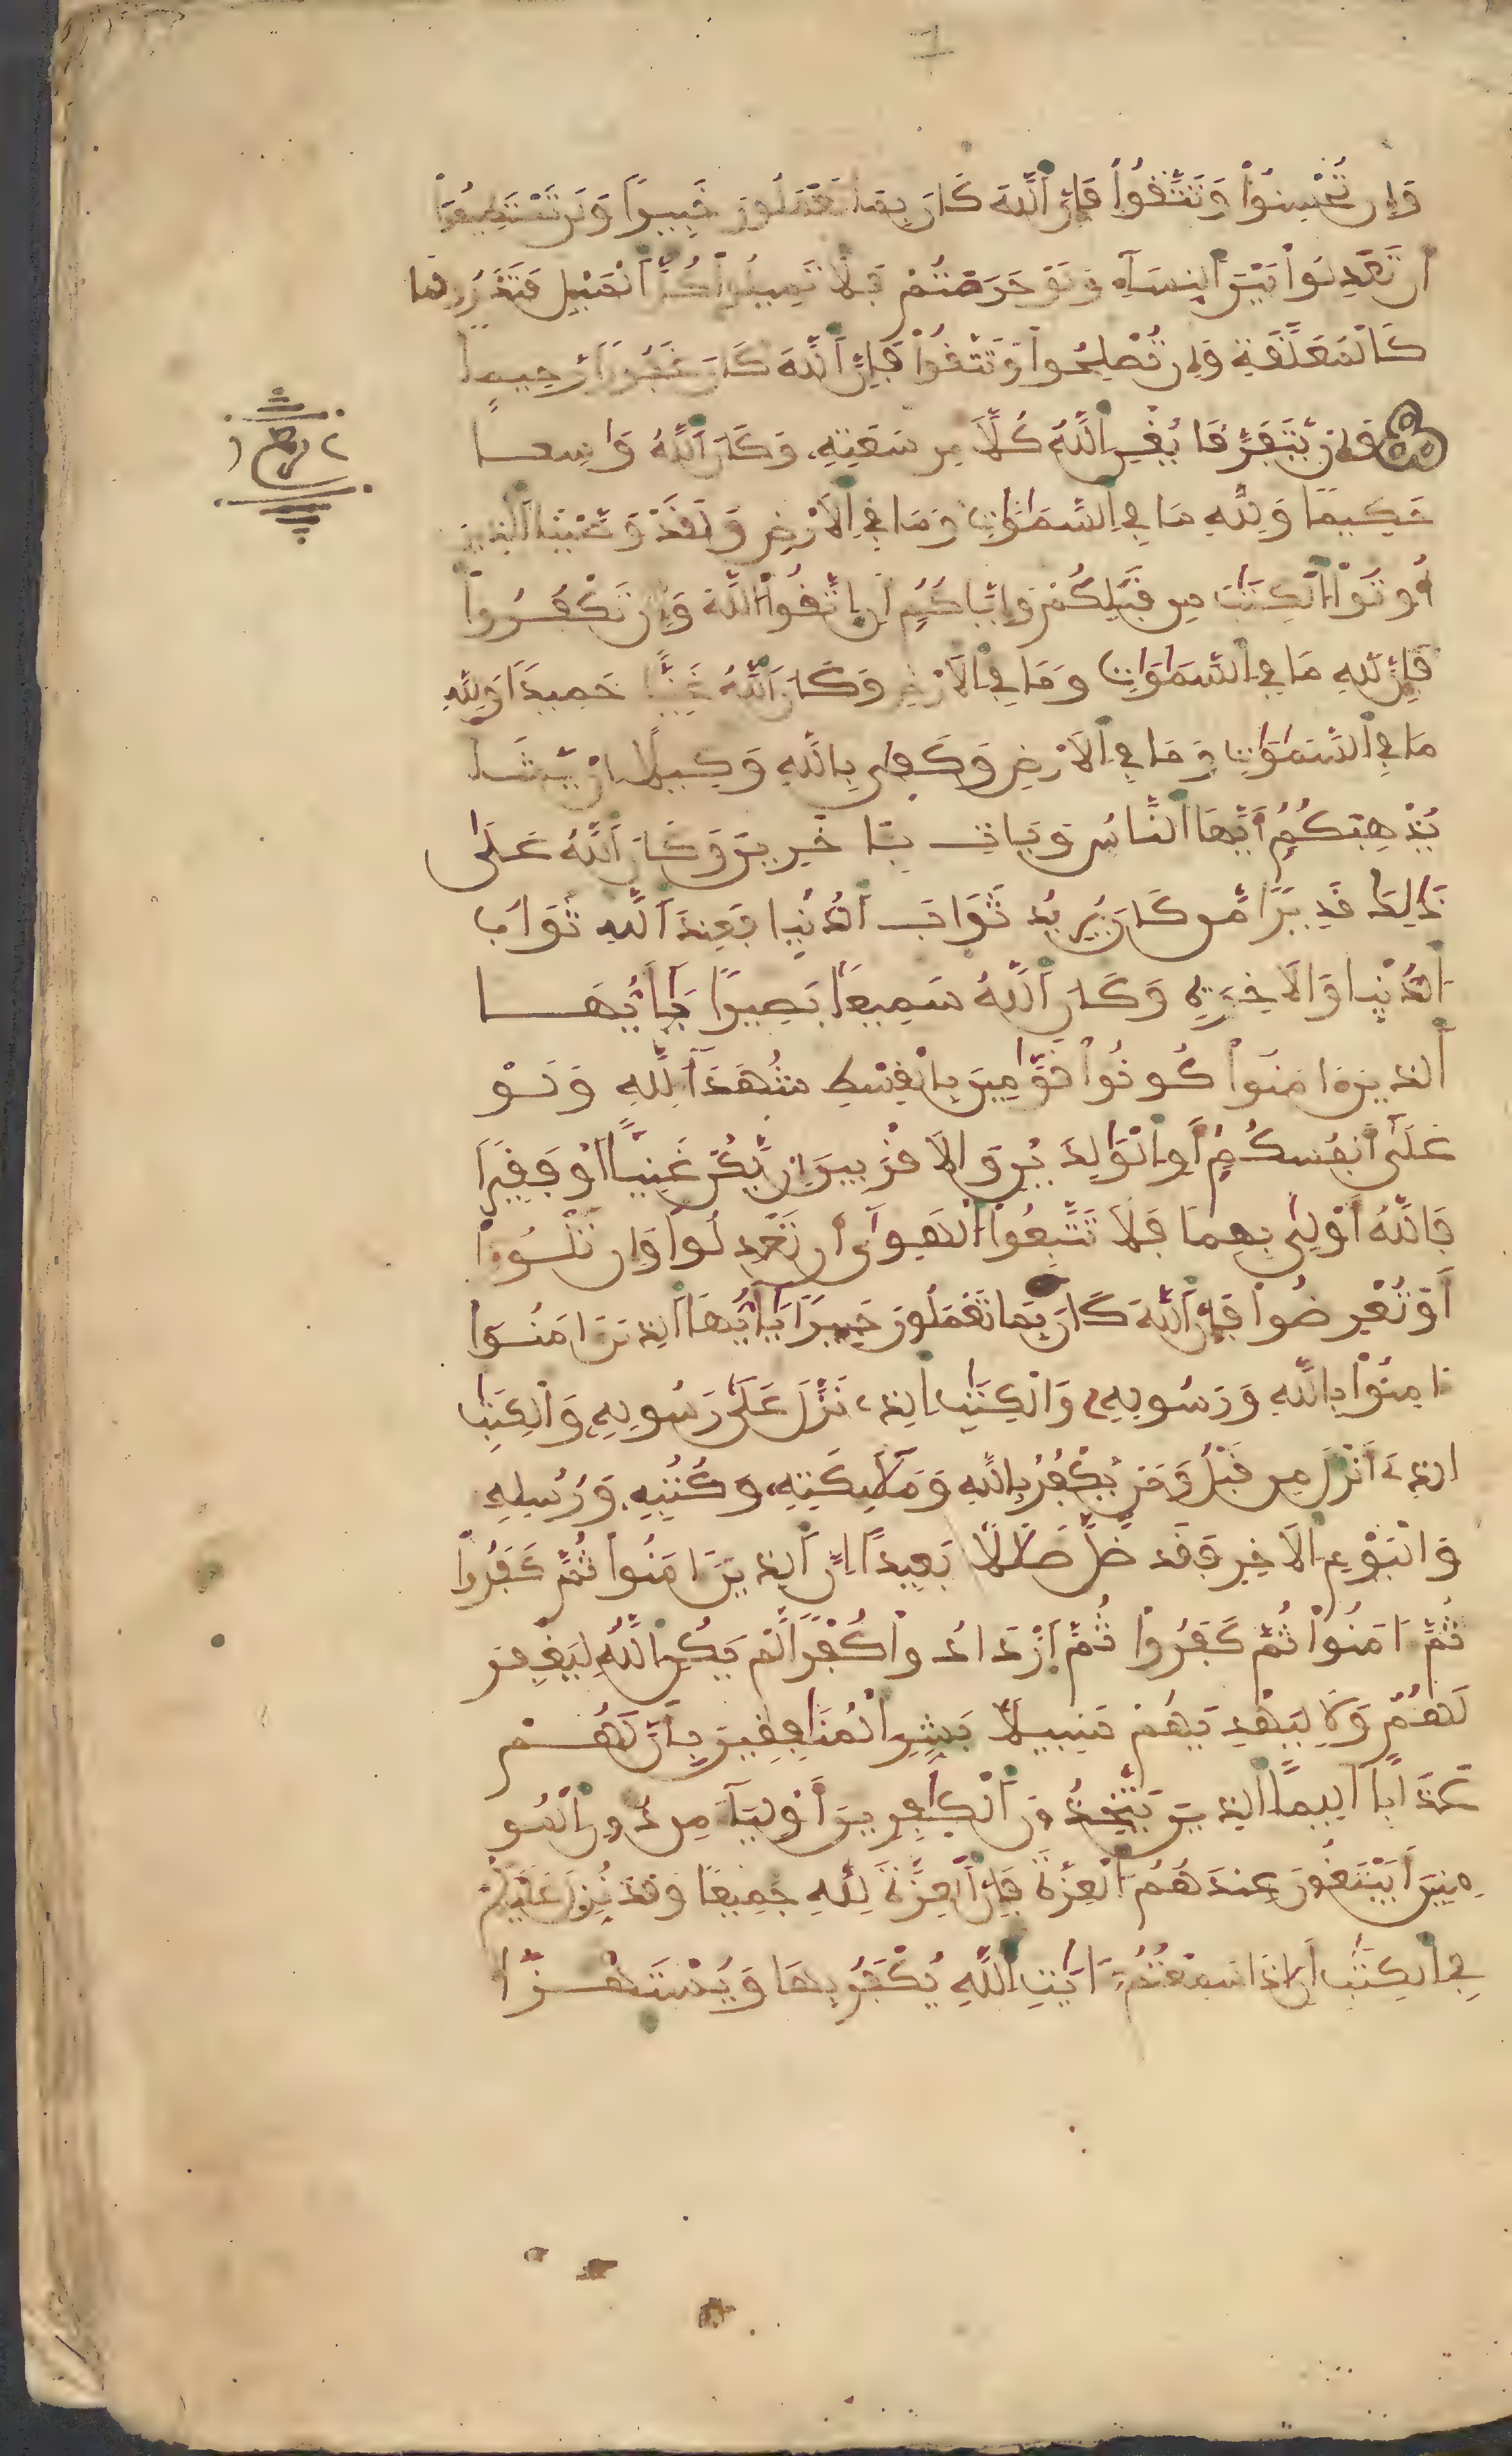 1
وَإِن تُحْسِنُواْ وَتَتَّقُواْ فَإِنَّ اَ۬للَّهَ كَانَ بِمَا تَعْمَلُونَ خَبِيراً وَلَن تَسْتَطِيعُواْ
أَن تَعْدِلُواْ بَيْنَ اَ۬لنِّسَآءِ وَلَوْ حَرَصْتُمْ فَلَا تَمِيلُواْ كُلَّ اَ۬لْمَيْلِ فَتَذَرُوهَا
كَالْمُعَلَّقَةِ وَإِن تُصْلِحُواْ وَتَتَّقُواْ فَإِنَّ اَ۬للَّهَ كَانَ غَفُوراً رَّحِيماً
وَإِن يَّتَفَرَّقَا يُغْنِ اِ۬للَّهُ كُلّاً مِّن سَعَتِهِ وَكَانَ اَ۬للَّهُ وَاسِعاً
حَكِيماً وَلِلَّهِ مَا فِي اِ۬لسَّمَٰوَٰتِ وَمَا فِي اِ۬لَارْضِ وَلَقَدْ وَصَّيْنَا اَ۬لذِينَ
أُوتُواْ اُ۬لْكِتَٰبَ مِن قَبْلِكُمْ وَإِيَّاكُمُ أَنِ اِ۪تَّقُواْ اُ۬للَّهَ وَإِن تَكْفُرُواْ
فَإِنَّ لِلَّهِ مَا فِي اِ۬لسَّمَٰوَٰتِ وَمَا فِي اِ۬لَارْضِ وَكَانَ اَ۬للَّهُ غَنِيّاً حَمِيداً وَلِلَّهِ
مَا فِي اِ۬لسَّمَٰوَٰتِ وَمَا فِي اِ۬لَارْضِ وَكَفَىٰ بِاللَّهِ وَكِيلاً اِنْ يَّشَأْ
يُذْهِبْكُمُ أَيُّهَا اَ۬لنَّاسُ وَيَاتِ بِـَٔاخَرِينَ وَكَانَ اَ۬للَّهُ عَلَىٰ
ذَٰلِكَ قَدِيراً مَّن كَانَ يُرِيدُ ثَوَابَ اَ۬لدُّنْيَا فَعِندَ اَ۬للَّهِ ثَوَابُ
اُ۬لدُّنْيَا وَالَاخِرَةِ وَكَانَ اَ۬للَّهُ سَمِيعاً بَصِيراً يَٰأَيُّهَا
اَ۬لذِينَ ءَامَنُواْ كُونُواْ قَوَّٰمِينَ بِالْقِسْطِ شُهَدَآءَ لِلَّهِ وَلَوْ
عَلَىٰ أَنفُسِكُمُ أَوِ اِ۬لْوَٰلِدَيْنِ وَالَاقْرَبِينَ إِن يَّكُنْ غَنِيّاً اَوْ فَقِيراً
فَاللَّهُ أَوْلَىٰ بِهِمَا فَلَا تَتَّبِعُواْ اُ۬لْهَوَىٰ أَن تَعْدِلُواْ وَإِن تَلْوُۥٓاْ
أَوْ تُعْرِضُواْ فَإِنَّ اَ۬للَّهَ كَانَ بِمَا تَعْمَلُونَ خَبِيراً يَٰأَيُّهَا اَ۬لذِينَ ءَامَنُواْ
ءَامِنُواْ بِاللَّهِ وَرَسُولِهِ وَالْكِتَٰبِ اِ۬لذِے نَزَّلَ عَلَىٰ رَسُولِهِ وَالْكِتَٰبِ
اِ۬لذِے أَنزَلَ مِن قَبْلُ وَمَنْ يَّكْفُرْ بِاللَّهِ وَمَلَٰٓئِكَتِهِ وَكُتُبِهِ وَرُسُلِهِ
وَالْيَوْمِ اِ۬لَاخِرِ فَقَد ضَّلَّ ضَلَٰلاً بَعِيداً اِنَّ اَ۬لذِينَ ءَامَنُواْ ثُمَّ كَفَرُواْ
ثُمَّ ءَامَنُواْ ثُمَّ كَفَرُواْ ثُمَّ اَ۪زْدَادُواْ كُفْراً لَّمْ يَكُنِ اِ۬للَّهُ لِيَغْفِرَ
لَهُمْ وَلَا لِيَهْدِيَهُمْ سَبِيلاً بَشِّرِ اِ۬لْمُنَٰفِقِينَ بِأَنَّ لَهُمْ
عَذَاباً اَلِيماً اَ۬لذِينَ يَتَّخِذُونَ اَ۬لْكَٰفِرِينَ أَوْلِيَآءَ مِن دُونِ اِ۬لْمُو
مِنِينَ أَيَبْتَغُونَ عِندَهُمُ اُ۬لْعِزَّةَ فَإِنَّ اَ۬لْعِزَّةَ لِلَّهِ جَمِيعاً وَقَدْ نُزِّلَ عَلَيْكُمْ
فِي اِ۬لْكِتَٰبِ أَنِ اِذَا سَمِعْتُمُ ءَايَٰتِ اِ۬للَّهِ يُكْفَرُ بِهَا وَيُسْتَهْزَأُ